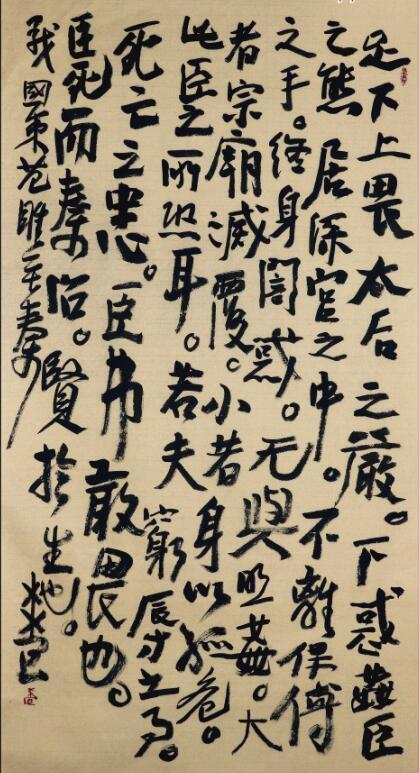 足下上畏太后之嚴。下惑姦臣
之態居深宮之中。不離保傅
之手。終身闇惑。无與姦。大
者宗廟滅覆。小者身以孤危。
此臣之所恐耳。若夫窮辱之事。
死亡之患。臣弗敢畏也。
臣死而秦治。賢於生也。
战國策范雎至秦